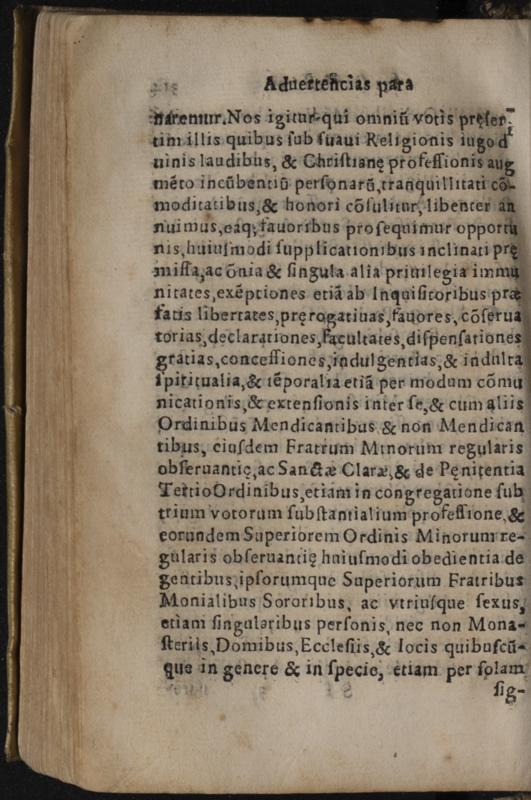 Aduertencias para
narentur. Nos igitur qui omniũ votis pręser-
tim illis quibus sub suaui Religionis iugo di
uinis laudibus, & Christianę professionis aug
mẽto incũbentiũ personarũ, tranquillitati cõ-
moditatibus, & honori cõsulitur, libenter an
nuimus, eaq; fauoribus prosequimur opportu
nis, huiusmodi supplicationibus inclinati prę
missa, ac õnia & singula alia priuilegia immu
nitates, exẽptiones etiã ab Inquisitoribus præ
fatis libertates, pręrogatiuas, fauores, cõserua
torias, declarationes, facultates, dispensationes
gratias, concessiones, indulgentias, & indulta
spiritualia, & tẽporalia etiã per modum cõmu
nicationis, & extensionis inter se, & cum aliis
Ordinibus Mendicantibus & non Mendican
tibus, eiusdem Fratrum Minorum regularis
obseruantię, ac Sanctæ Claræ, & de Pęnitentia
Tertio Ordinibus, etiam in congregatione sub
trium votorum substantialium professione, &
eorundem Superiorem Ordinis Minorum re-
gularis obseruantię huiusmodi obedientia de
gentibus, ipsorumque Superiorum Fratribus
Monialibus Sororibus, ac vtriusque sexus,
etiam singularibus personis, nec non Mona-
steriis, Domibus, Ecclesiis, & locis quibuscũ-
que in genere & in specie, etiam per solam
sig-